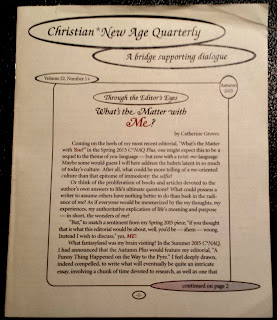 Christian*New Age Quarterly
A bridge supporting dialogue
Volume 22, Number 1
Autumn
2015
Through the Editor's Eyes
What's the Matter with
Me?
by Catherine Groves
Coming on the heels of my most recent editorial, "What's the Matter
with You?" in the Spring 2015 C*NAQ Plus, one might expect this to be a
sequel to the theme of you-language — but now with a twist: me-language.
Maybe some would guess I will here address the hubris latent in so much
of today's culture. After all, what could be more telling of a me-oriented
culture than that epitome of immodesty: the selfie?
Or think of the proliferation of books and articles devoted to the
author's own answer to life's ultimate questions? What could possess a
writer to assume others have nothing better to do than bask in the radi-
ance of me? As if everyone would be mesmerized by the my thoughts, my
experiences, my authoritative explication of life's meaning and purpose
— in short, the wonders of me?
"But," to match a sentiment from my Spring 2015 piece, "if you thought
that is what this editorial would be about, well, you'd be — ahem — wrong.
Instead I wish to discuss," yes, ME!
What fantasyland was my brain visiting? In the Summer 2015 C*NAQ,
I had announced that the Autumn Plus would feature my editorial, "A
Funny Thing Happened on the Way to the Pyre." I feel deeply drawn,
indeed compelled, to write what will eventually be quite an intricate
essay, involving a chunk of time devoted to research, as well as one that
continued on page 2